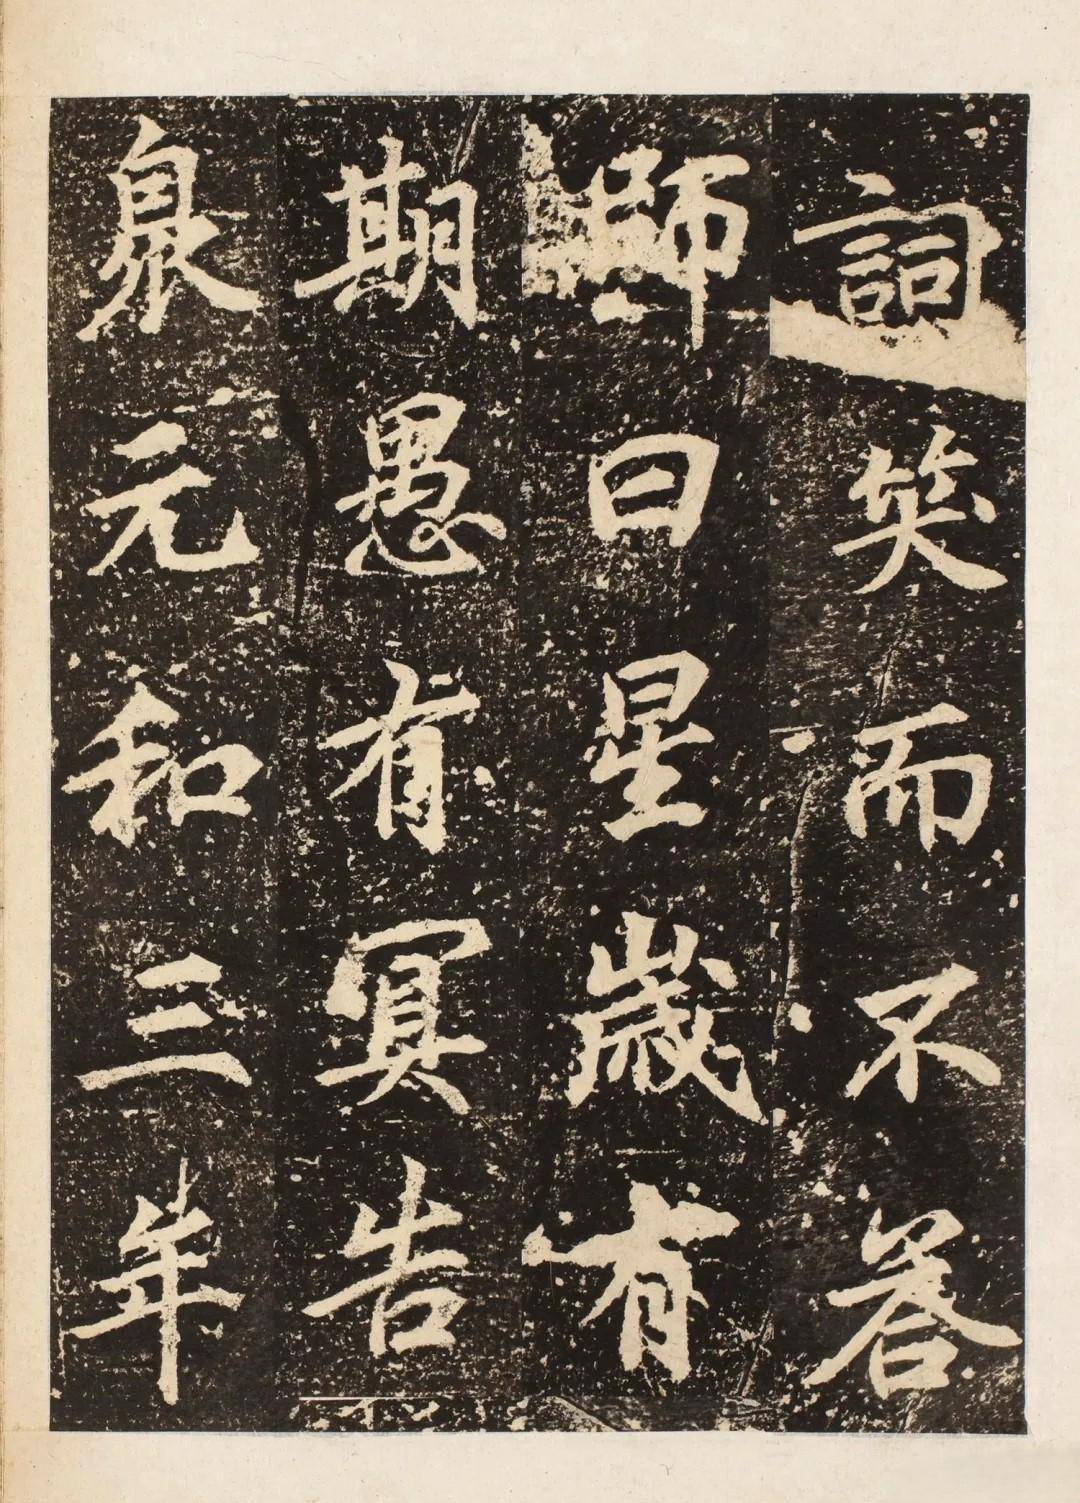 詞笑而不答
師曰星歲有
期愚有冥告
臮元和三年